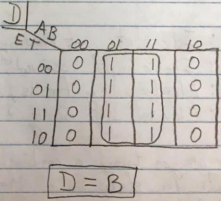 D
AB
ET 00 01 11 10
00 0 1 1 0
01 0 1 1 0
11 0 1 1 0
10 0 1 1 0
D = B